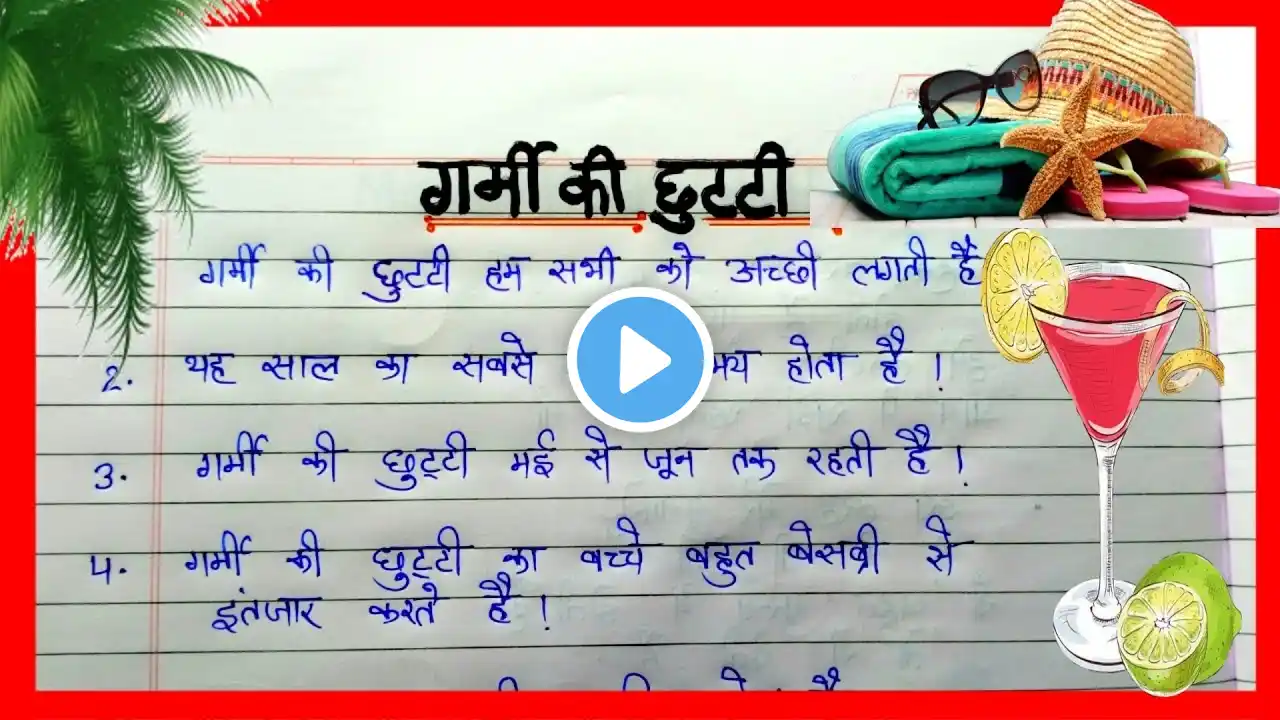 गर्मी की छुटटी
गर्मी की छुटटी हम सभी को अच्छी लगती है
2. यह साल का सबसे होता है !
3. गर्मी की छुट्टी मई से जून तक रहती है !
4. गर्मी की छुट्टी का बच्चे बहुत बेसब्री से
इंतजार करते है !